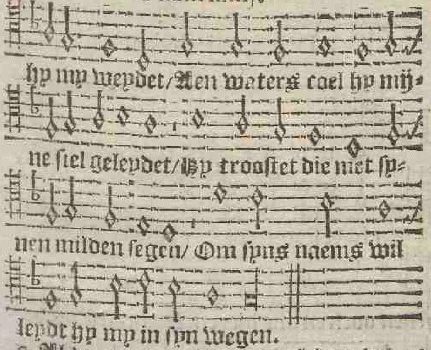 hy my weydet/Aen waters coel hy mij-
ne siel geleydet/Hy troostet die met sy-
nen milden segen/ Om syns naems wil
leydt hy my in syn wegen.